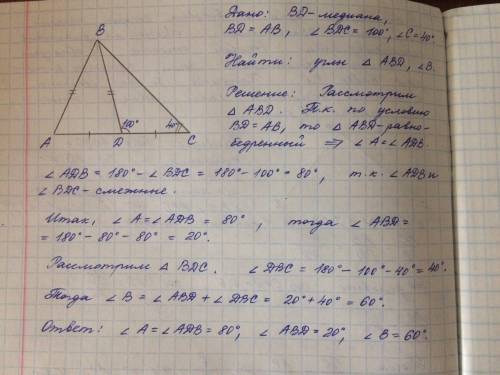 Дано: BD-медиана,
BD = AB, ∠BDC = 100°, ∠C=40°
Найти: углы △ ABD, ∠B.
Решение: Рассмотрим
△ ABD. Т.к. по условию
BD = AB, то △ ABD-равно-
бедренный ⇒ ∠A=∠ADB.
B
100°
40°
A
D
C
∠ADB = 180° - ∠BDC = 180° - 100° = 80°, т.к. ∠ADB и
∠BDC - смежные.
Итак, ∠A = ∠ADB = 80°, тогда ∠ABD =
= 180° - 80° - 80° = 20°.
Рассмотрим △ BDC. ∠DBC = 180° - 100° - 40° = 40°.
Тогда ∠B = ∠ABD + ∠DBC = 20° + 40° = 60°.
Ответ: ∠A = ∠ADB = 80°, ∠ABD = 20°, ∠B = 60°.